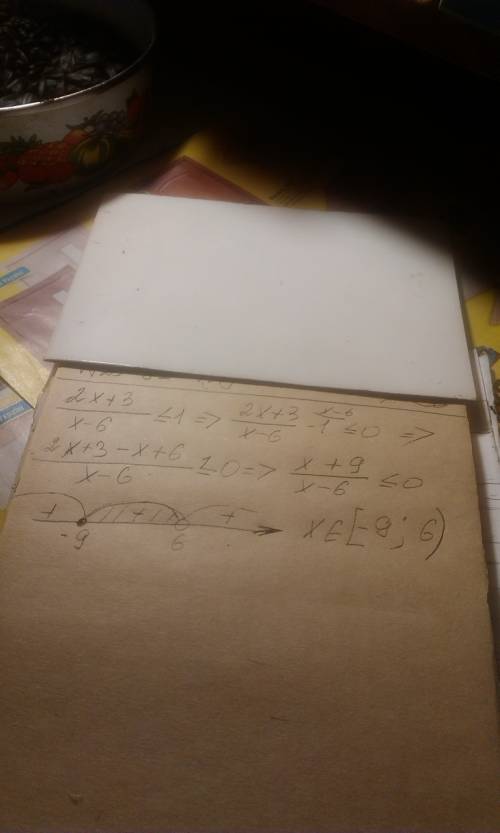 (2x+3)/(x-6) ≤ 1 => (2x+3)/(x-6) - 1 ≤ 0 =>
x-6
(2x+3-x+6)/(x-6) ≤ 0 => (x+9)/(x-6) ≤ 0
+ + +
-9 6
x ∈ [-9; 6)